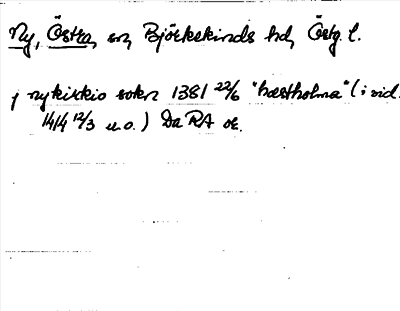 Ny, Östra, sn, Björkekinds hd, Östg. l.
j nykirkio sokn 1381 22/6 "hæstholma" (i vid.
1414 12/3 u.o.) Da RA or.